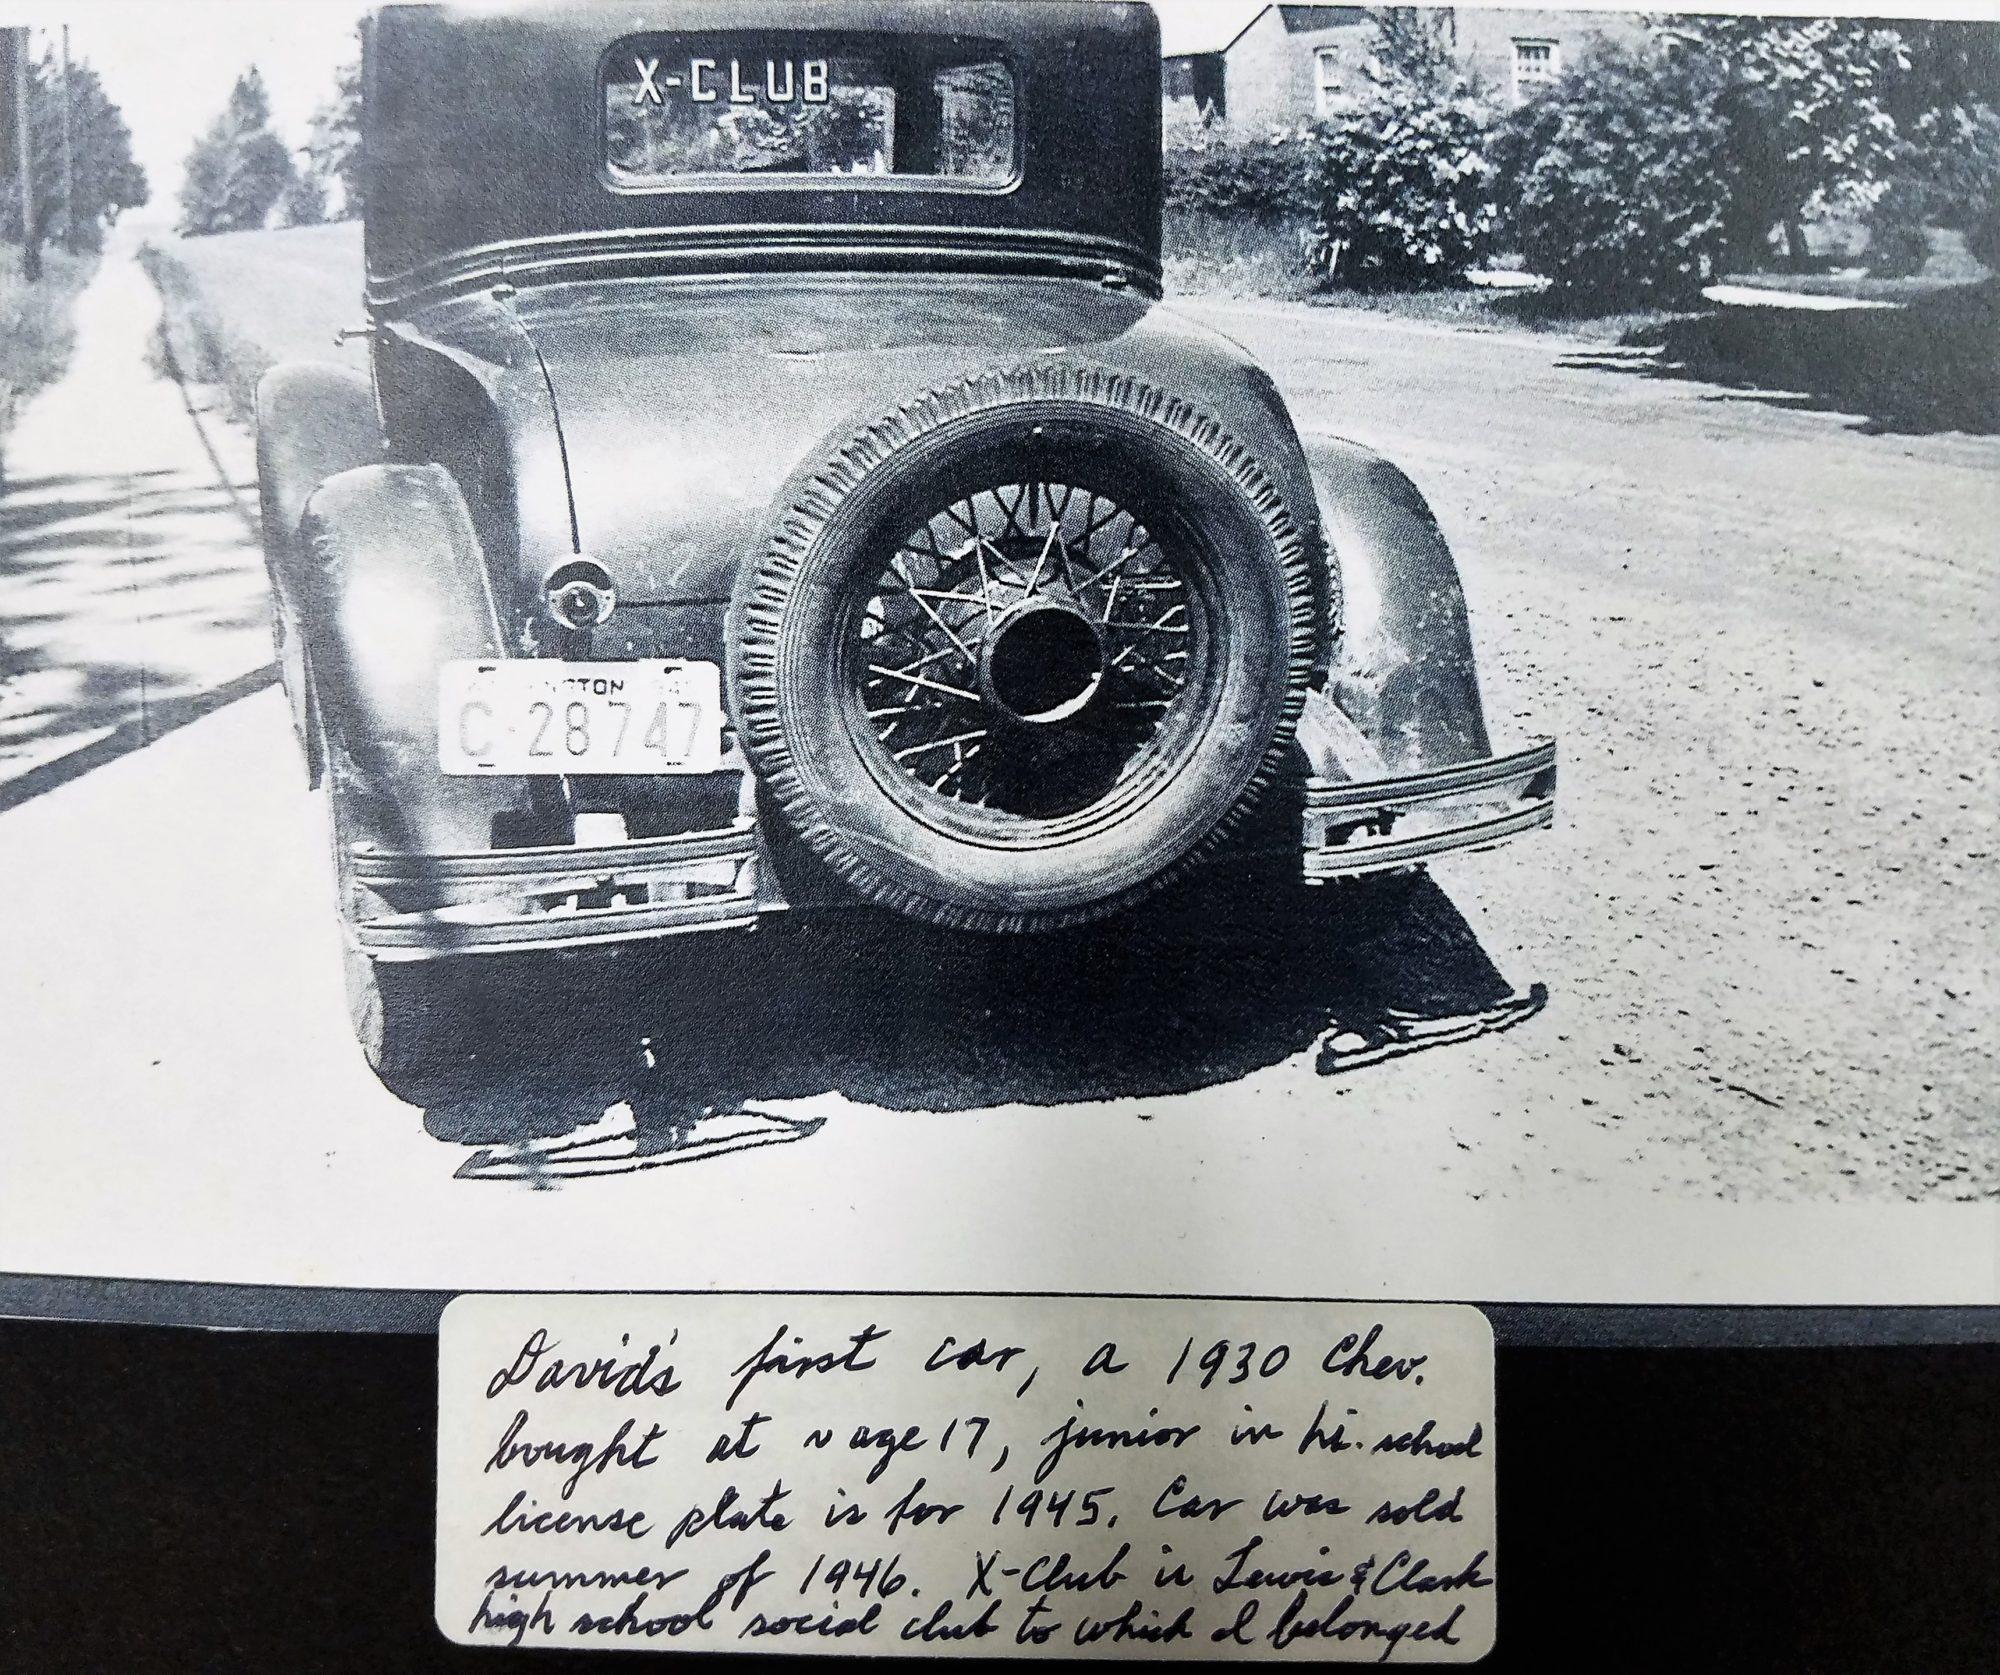 X-CLUB
C-28747
David's first car, a 1930 Chev.
bought at age 17, junior in hi. school
license plate is for 1945. Car was sold
summer of 1946. X-Club is Lewis & Clark
high school social club to which I belonged